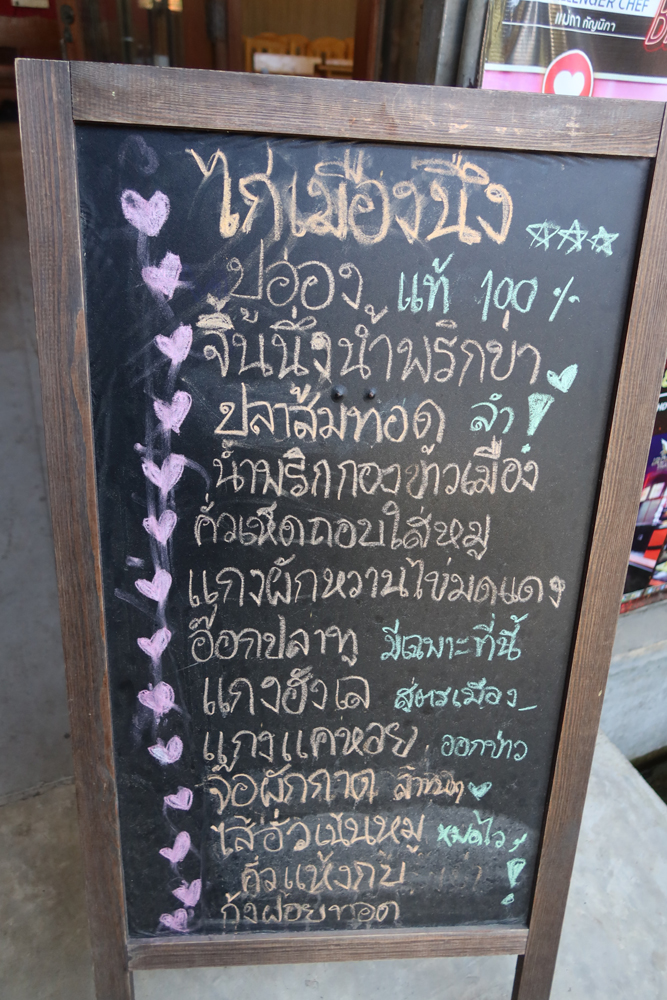 LENGER CHEF
แม่ภา กัญนิภา
ไก่เมืองนึ่ง
ปูอ่อง แท้ 100 %
จิ้นนึ่งน้ำพริกข่า
ปลาส้มทอด ลำ !
น้ำพริกกองข้าวเมือง
คั่วเห็ดถอบใส่หมู
แกงผักหวานไข่มดแดง
อ๊อกปลาทู มีเฉพาะที่นี้
แกงฮังเล สูตรเมือง
แกงแคหอย ออกข่าว
จอผักกาด
ไส้อั่วเน้นหมู หมดไว !
คั่วแห้งกบ
กุ้งฝอยทอด